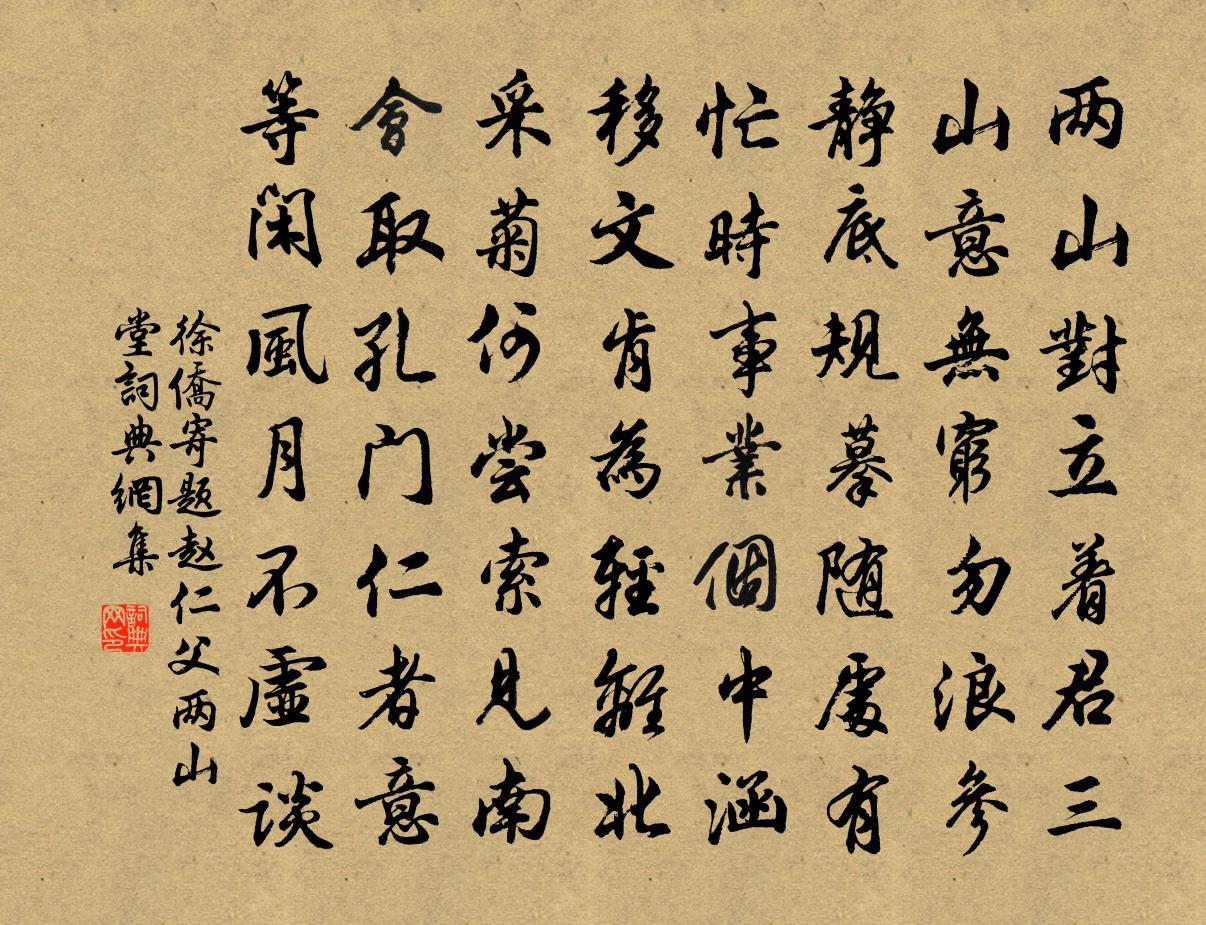 两山對立着君三
山意無窮勿浪參
静底規摹随處有
忙時事業個中涵
移文肯為輕離北
采菊何尝索見南
會取孔门仁者意
等閑風月不虛談
徐僑寄题赵仁父两山
堂詞典網集
詞典网印